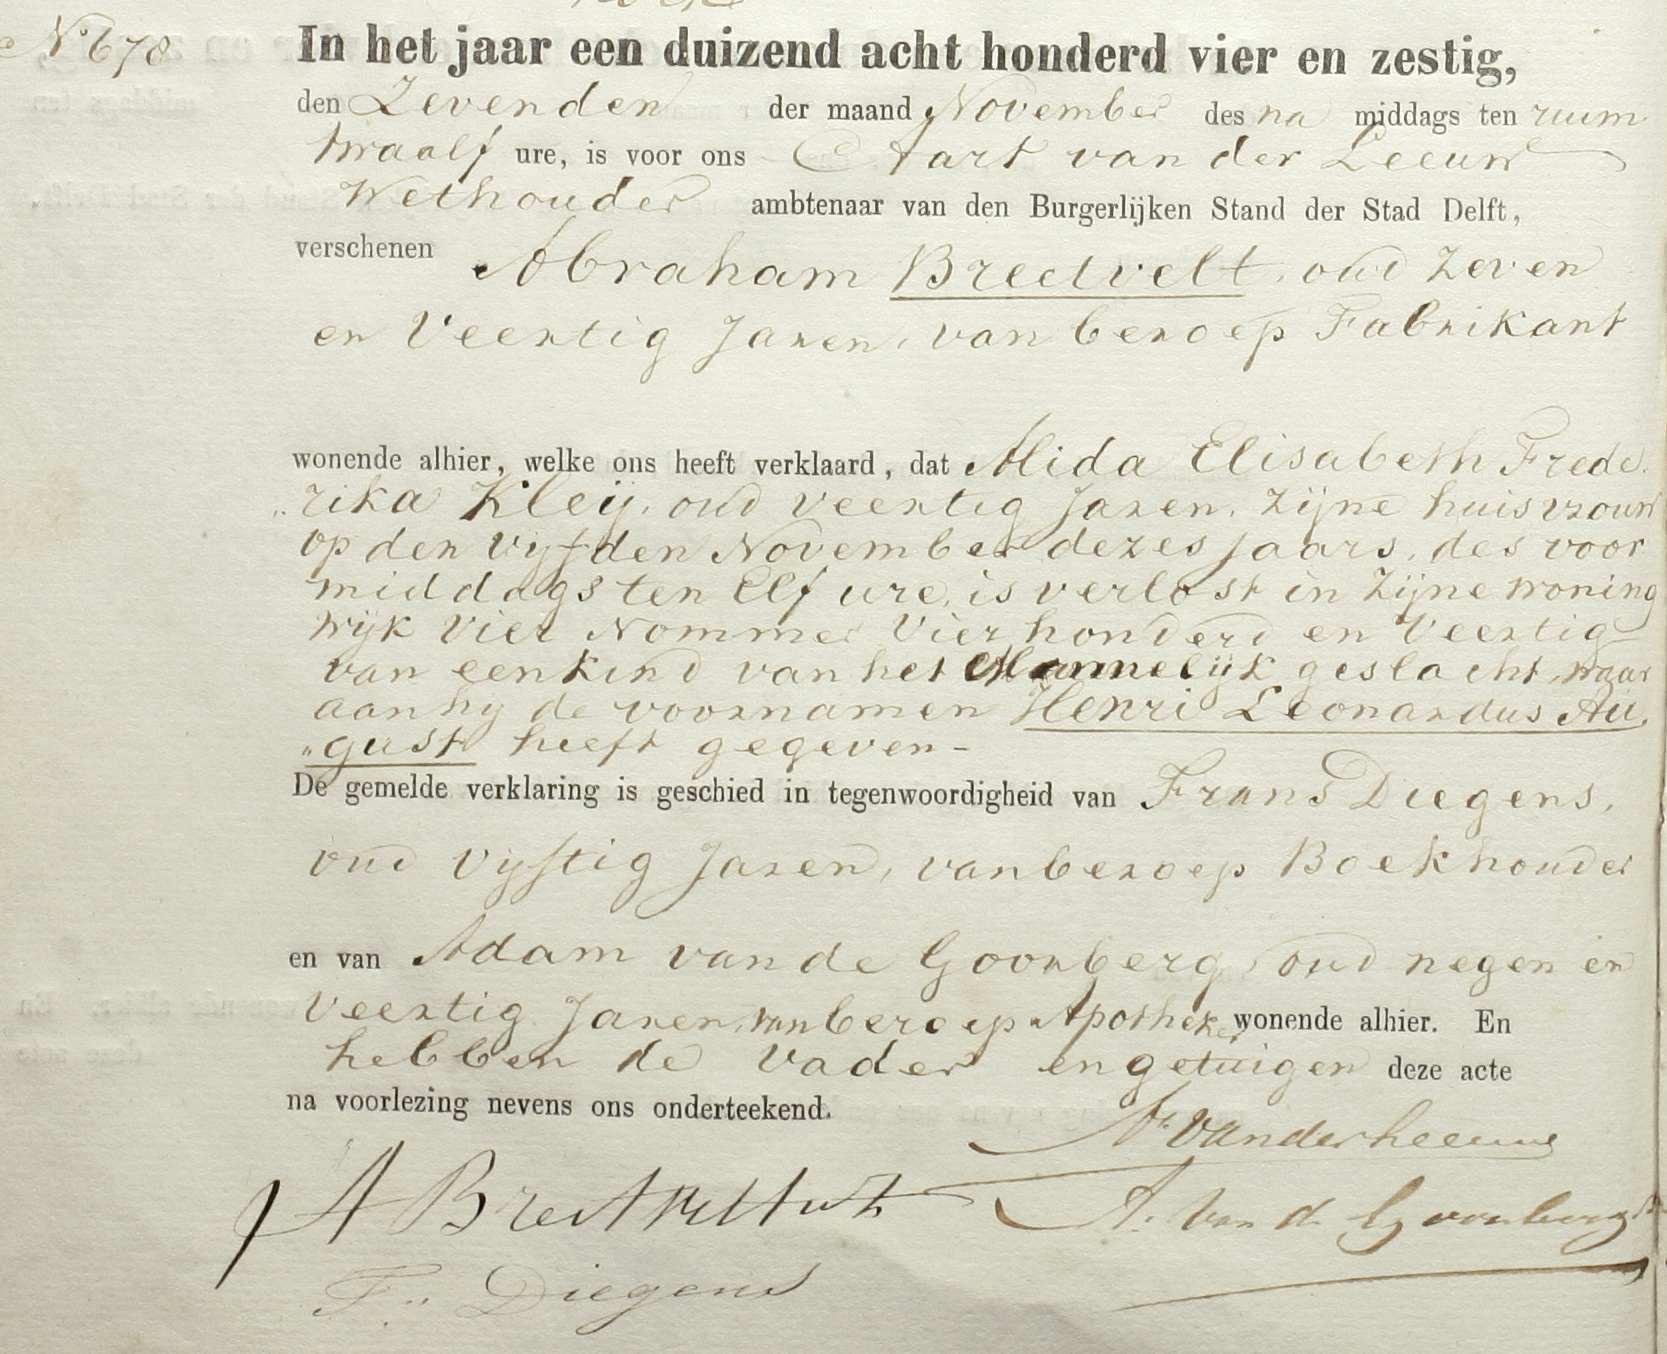 No 678
In het jaar een duizend acht honderd vier en zestig,
den Zevenden der maand November des na middags ten ruim
twaalf ure, is voor ons Aart van der Leeuw
Wethouder ambtenaar van den Burgerlijken Stand der Stad Delft,
verschenen Abraham Bredvelt, oud Zeven
en Veertig Jaren, van beroep Fabrikant
wonende alhier, welke ons heeft verklaard, dat Alida Elisabeth Frede„
„rika Kleij, oud veertig Jaren, zijne huisvrouw
op den vijfden November dezes jaars, des voor
middags ten Elf ure, is verlost in zijne woning
Wijk Vier Nommer Vierhonderd en Veertig
van een kind van het Mannelijk geslacht, waar
aan hij de voornamen Henri Leonardus Au„
„gust heeft gegeven -
De gemelde verklaring is geschied in tegenwoordigheid van Frans Diegens,
oud vijftig Jaren, van beroep Boekhouder
en van Adam van de Goorberg, oud negen en
Veertig Jaren, van beroep Apotheker wonende alhier. En
hebben de vader en getuigen deze acte
na voorlezing nevens ons onderteekend.
A. van der Leeuw
A Bredvelt
A. Van d. Goorberg
F. Diegens